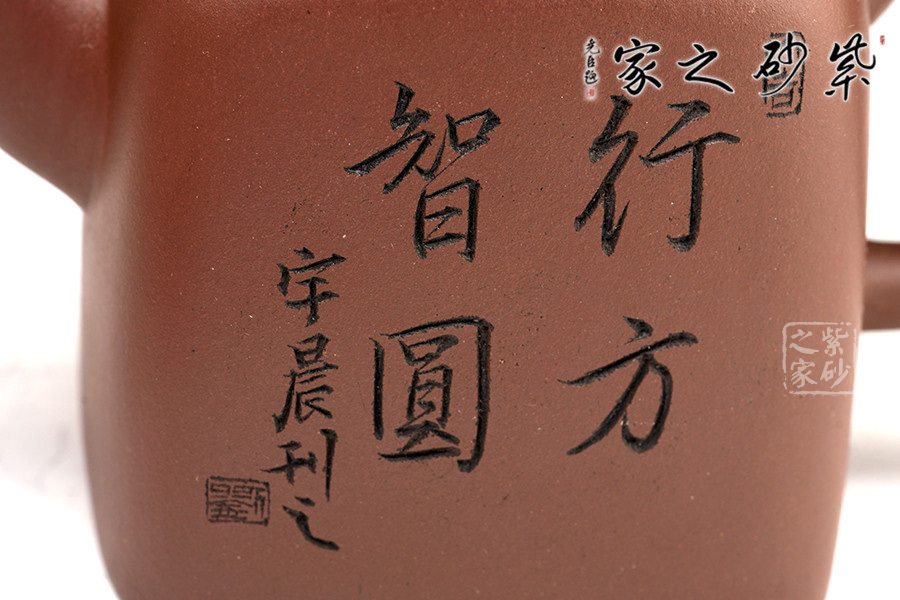 紫砂之家
行方
智圓
宇晨刊之
紫砂
之家